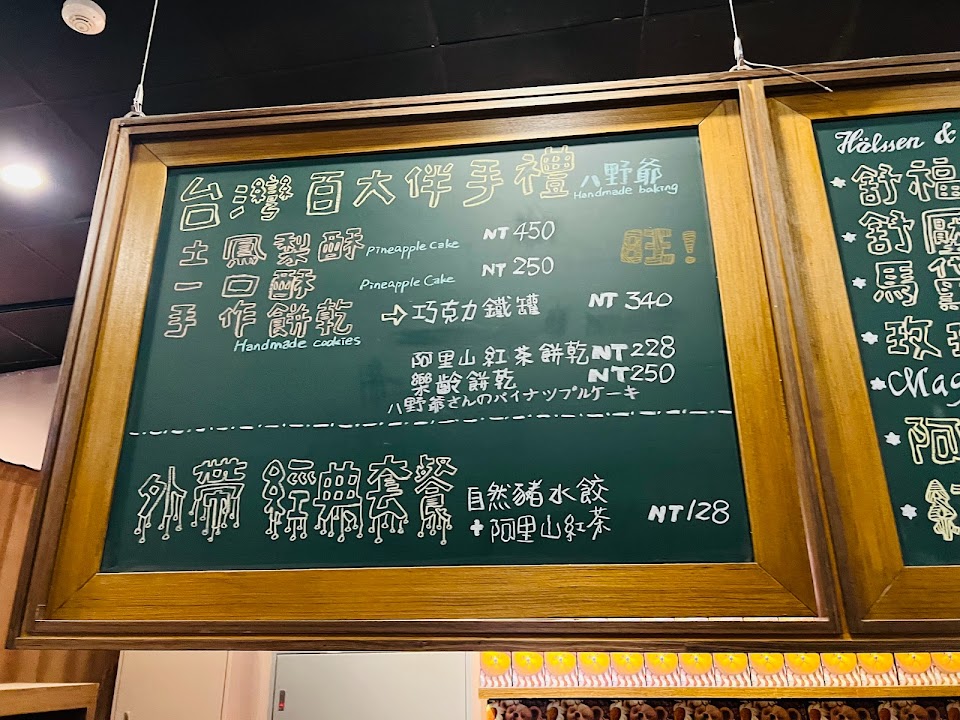 台灣百大伴手禮 八野爺
Handmade baking
土鳳梨酥 Pineapple Cake NT 450
旺!
一口酥 Pineapple Cake NT 250
手作餅乾 ⇨ 巧克力鐵罐 NT 340
Handmade cookies
阿里山紅茶餅乾 NT 228
樂齡餅乾 NT 250
八野爺さんのパイナップルケーキ
外帶 經典套餐 自然豬水餃
+ 阿里山紅茶 NT 128
Hälssen &
舒福
舒
馬
玫
Mag
阿